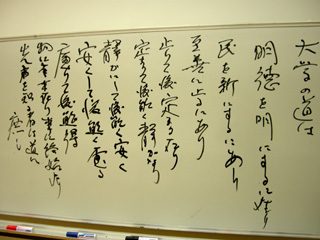 大学の道は
明徳を明にするに在り
民を新にするにあり
至善に止るにあり
止りて後定まる有り
定まりて後能く静かなり
静かにして後能く安く
安くして後能く慮る
慮りて後能く得
物に本末有り事に終始有り
先後を知る者は道に
庶し